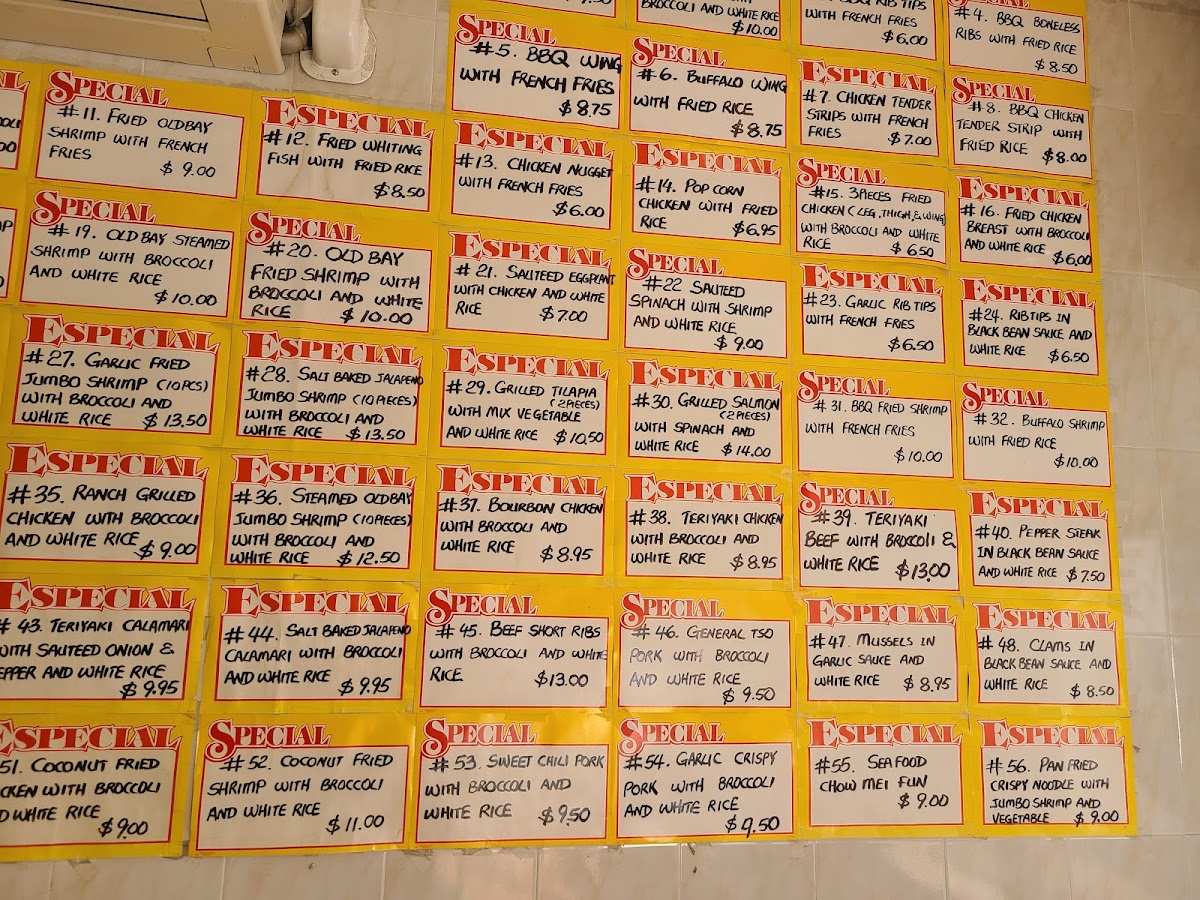 9.50
BROCCOLI AND WHITE RICE
$10.00
BBQ RIB TIPS
WITH FRENCH FRIES
$6.00
#4. BBQ BONELESS
RIBS WITH FRIED RICE
$8.50
SPECIAL
#5. BBQ WING
WITH FRENCH FRIES
$8.75
SPECIAL
#6. BUFFALO WING
WITH FRIED RICE
$8.75
ESPECIAL
#7. CHICKEN TENDER
STRIPS WITH FRENCH
FRIES
$7.00
SPECIAL
#8. BBQ CHICKEN
TENDER STRIP WITH
FRIED RICE $8.00
SPECIAL
#11. FRIED OLDBAY
SHRIMP WITH FRENCH
FRIES
$9.00
ESPECIAL
#12. FRIED WHITING
FISH WITH FRIED RICE
$8.50
ESPECIAL
#13. CHICKEN NUGGET
WITH FRENCH FRIES
$6.00
ESPECIAL
#14. POP CORN
CHICKEN WITH FRIED
RICE $6.95
SPECIAL
#15. 3PIECES FRIED
CHICKEN (LEG, THIGH, & WING)
WITH BROCCOLI AND WHITE
RICE $6.50
ESPECIAL
#16. FRIED CHICKEN
BREAST WITH BROCCOLI
AND WHITE RICE
$6.00
SPECIAL
#19. OLD BAY STEAMED
SHRIMP WITH BROCCOLI
AND WHITE RICE
$10.00
SPECIAL
#20. OLD BAY
FRIED SHRIMP WITH
BROCCOLI AND WHITE
RICE $10.00
ESPECIAL
#21. SAUTEED EGGPLANT
WITH CHICKEN AND WHITE
RICE $7.00
SPECIAL
#22 SAUTEED
SPINACH WITH SHRIMP
AND WHITE RICE
$9.00
ESPECIAL
#23. GARLIC RIB TIPS
WITH FRENCH FRIES
$6.50
ESPECIAL
#24. RIB TIPS IN
BLACK BEAN SAUCE AND
WHITE RICE $6.50
ESPECIAL
#27. GARLIC FRIED
JUMBO SHRIMP (10 PCS)
WITH BROCCOLI AND
WHITE RICE $13.50
ESPECIAL
#28. SALT BAKED JALAPENO
JUMBO SHRIMP (10 PIECES)
WITH BROCCOLI AND
WHITE RICE $13.50
ESPECIAL
#29. GRILLED TILAPIA
(2 PIECES)
WITH MIX VEGETABLE
AND WHITE RICE $10.50
ESPECIAL
#30. GRILLED SALMON
(2 PIECES)
WITH SPINACH AND
WHITE RICE $14.00
SPECIAL
#31. BBQ FRIED SHRIMP
WITH FRENCH FRIES
$10.00
SPECIAL
#32. BUFFALO SHRIMP
WITH FRIED RICE
$10.00
ESPECIAL
#35. RANCH GRILLED
CHICKEN WITH BROCCOLI
AND WHITE RICE $9.00
ESPECIAL
#36. STEAMED OLDBAY
JUMBO SHRIMP (10 PIECES)
WITH BROCCOLI AND
WHITE RICE $12.50
ESPECIAL
#37. BOURBON CHICKEN
WITH BROCCOLI AND
WHITE RICE $8.95
ESPECIAL
#38. TERIYAKI CHICKEN
WITH BROCCOLI AND
WHITE RICE $8.95
SPECIAL
#39. TERIYAKI
BEEF WITH BROCCOLI &
WHITE RICE $13.00
ESPECIAL
#40. PEPPER STEAK
IN BLACK BEAN SAUCE
AND WHITE RICE $7.50
ESPECIAL
# 43. TERIYAKI CALAMARI
WITH SAUTEED ONION &
PEPPER AND WHITE RICE
$9.95
ESPECIAL
#44. SALT BAKED JALAPENO
CALAMARI WITH BROCCOLI
AND WHITE RICE $9.95
SPECIAL
#45. BEEF SHORT RIBS
WITH BROCCOLI AND WHITE
RICE $13.00
SPECIAL
#46. GENERAL TSO
PORK WITH BROCCOLI
AND WHITE RICE
$9.50
ESPECIAL
#47. MUSSELS IN
GARLIC SAUCE AND
WHITE RICE $8.95
ESPECIAL
#48. CLAMS IN
BLACK BEAN SAUCE AND
WHITE RICE $8.50
ESPECIAL
51. COCONUT FRIED
CKEN WITH BROCCOLI
D WHITE RICE
$9.00
SPECIAL
#52. COCONUT FRIED
SHRIMP WITH BROCCOLI
AND WHITE RICE
$11.00
SPECIAL
#53. SWEET CHILI PORK
WITH BROCCOLI AND
WHITE RICE $9.50
SPECIAL
#54. GARLIC CRISPY
PORK WITH BROCCOLI
AND WHITE RICE
$9.50
ESPECIAL
#55. SEAFOOD
CHOW MEI FUN
$9.00
ESPECIAL
#56. PAN FRIED
CRISPY NOODLE WITH
JUMBO SHRIMP AND
VEGETABLE $9.00